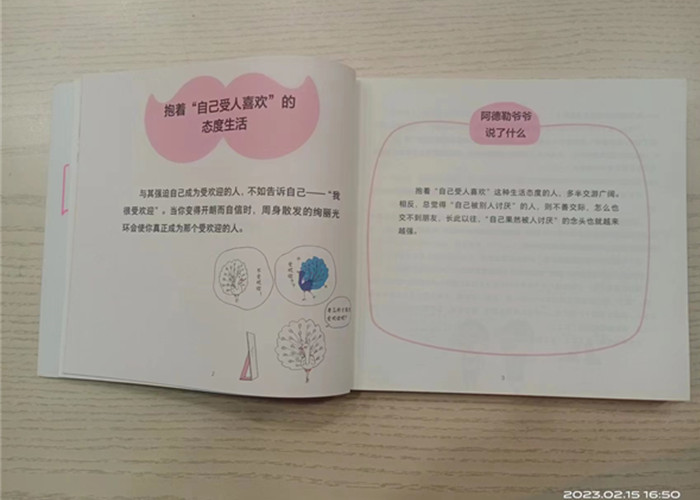 抱着“自己受人喜欢”的
态度生活
与其强迫自己成为受欢迎的人，不如告诉自己——“我
很受欢迎”。当你变得开朗而自信时，周身散发的绚丽光
环会使你真正成为那个受欢迎的人。
2
阿德勒爷爷
说了什么
抱着“自己受人喜欢”这种生活态度的人，多半交游广阔。
相反，总觉得“自己被别人讨厌”的人，则不善交际，怎么也
交不到朋友，长此以往，“自己果然被人讨厌”的念头也就越来
越强。
3
2023.02.15 16:50